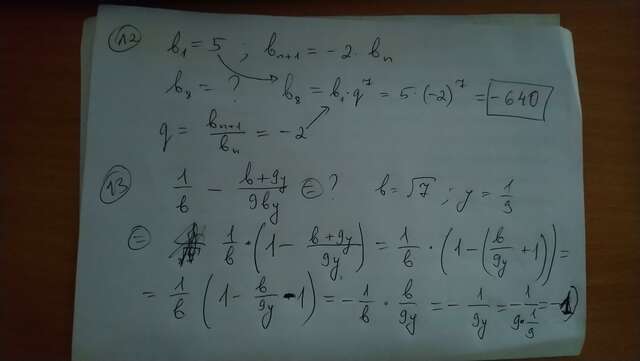 12 b₁ = 5 ; bₙ₊₁ = -2 · bₙ
b₈ = ? b₈ = b₁ · q⁷ = 5 · (-2)⁷ = -640
q = bₙ₊₁/bₙ = -2
13 1/b - (b+9y)/(9by) = ? b = √7 ; y = 1/9
= 1/b · (1 - (b+9y)/(9y)) = 1/b · (1 - (b/(9y) + 1)) =
= 1/b (1 - b/(9y) - 1) = -1/b · b/(9y) = -1/(9y) = -1/(9·1/9) = -1